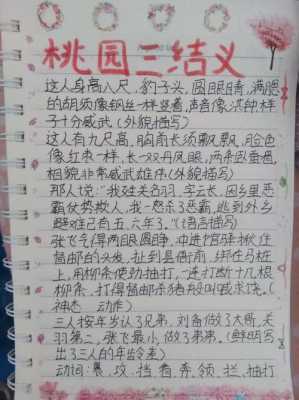 桃园三结义
这人身高八尺，豹子头，圆眼睛，满腮
的胡须像钢丝一样竖着，声音像洪钟样
子十分威武（外貌描写）
这人有九尺高，胸前长须飘飘，脸色
像红枣一样，长一双丹凤眼，两条卧蚕眉，
相貌非常威武雄伟（外貌描写）
那人说：“我姓关名羽，字云长，因乡里恶
霸仗势欺人，我一怒杀了恶霸，逃到外乡
避难已有五、六年了。”（语言描写）
张飞气得两眼圆睁，冲进官驿揪住
督邮的头发，扯到县衙前，绑在马桩
上，用柳条使劲抽打，一连打断十几根
柳条，打得督邮杀猪般叫喊求饶。（
神态 动作）
三人按年岁认了兄弟，刘备做了大哥，关
羽第二，张飞最小，做了弟弟。（鲜明写
出了三人的年龄差）
动词：攻、挡、奔、领、拦、抽打